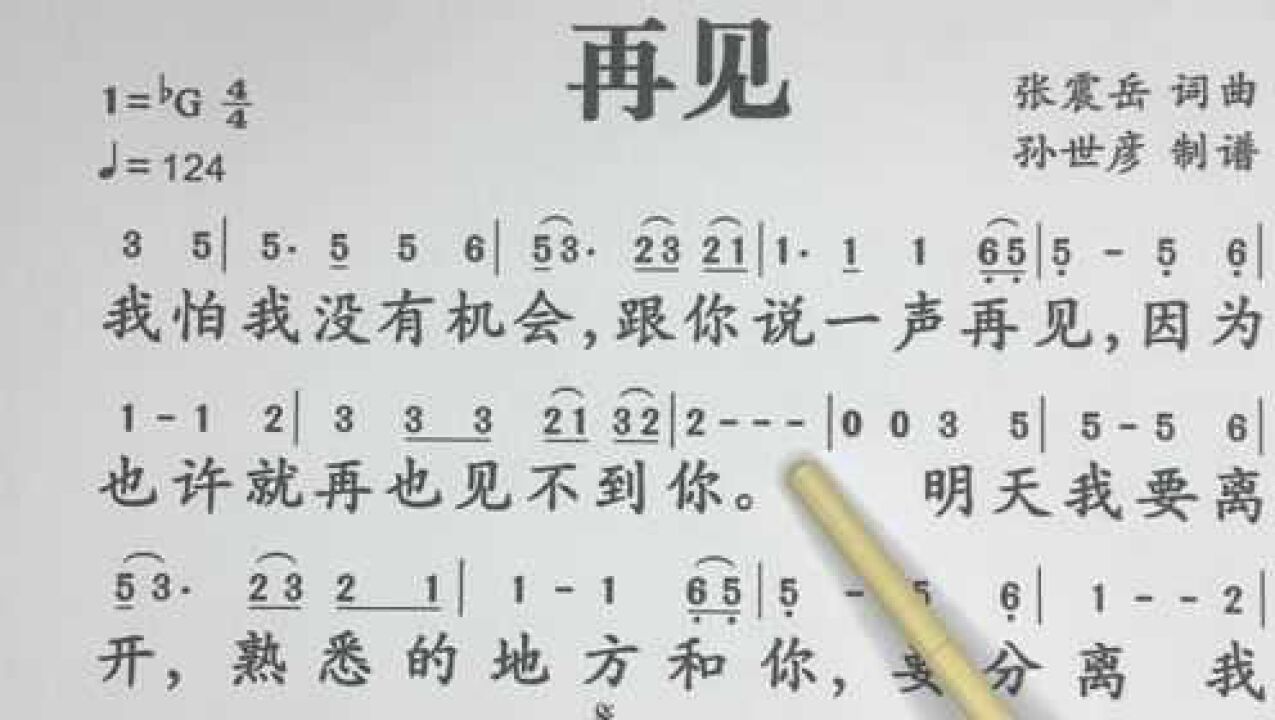 再见
1=♭G 4/4
张震岳 词曲
♩=124
孙世彦 制谱
3 5| 5· 5 5 6| 53· 23 21| 1· 1 1 65| 5 - 5 6|
我怕我没有机会,跟你说一声再见,因为
1 - 1 2| 3 3 3 21 32| 2 - - - |0 0 3 5| 5 - 5 6|
也许就再也见不到你。 明天我要离
53· 23 2 1| 1 - 1 65| 5 - 5 6| 1 - - 2|
开,熟悉的地方和你,要分离 我